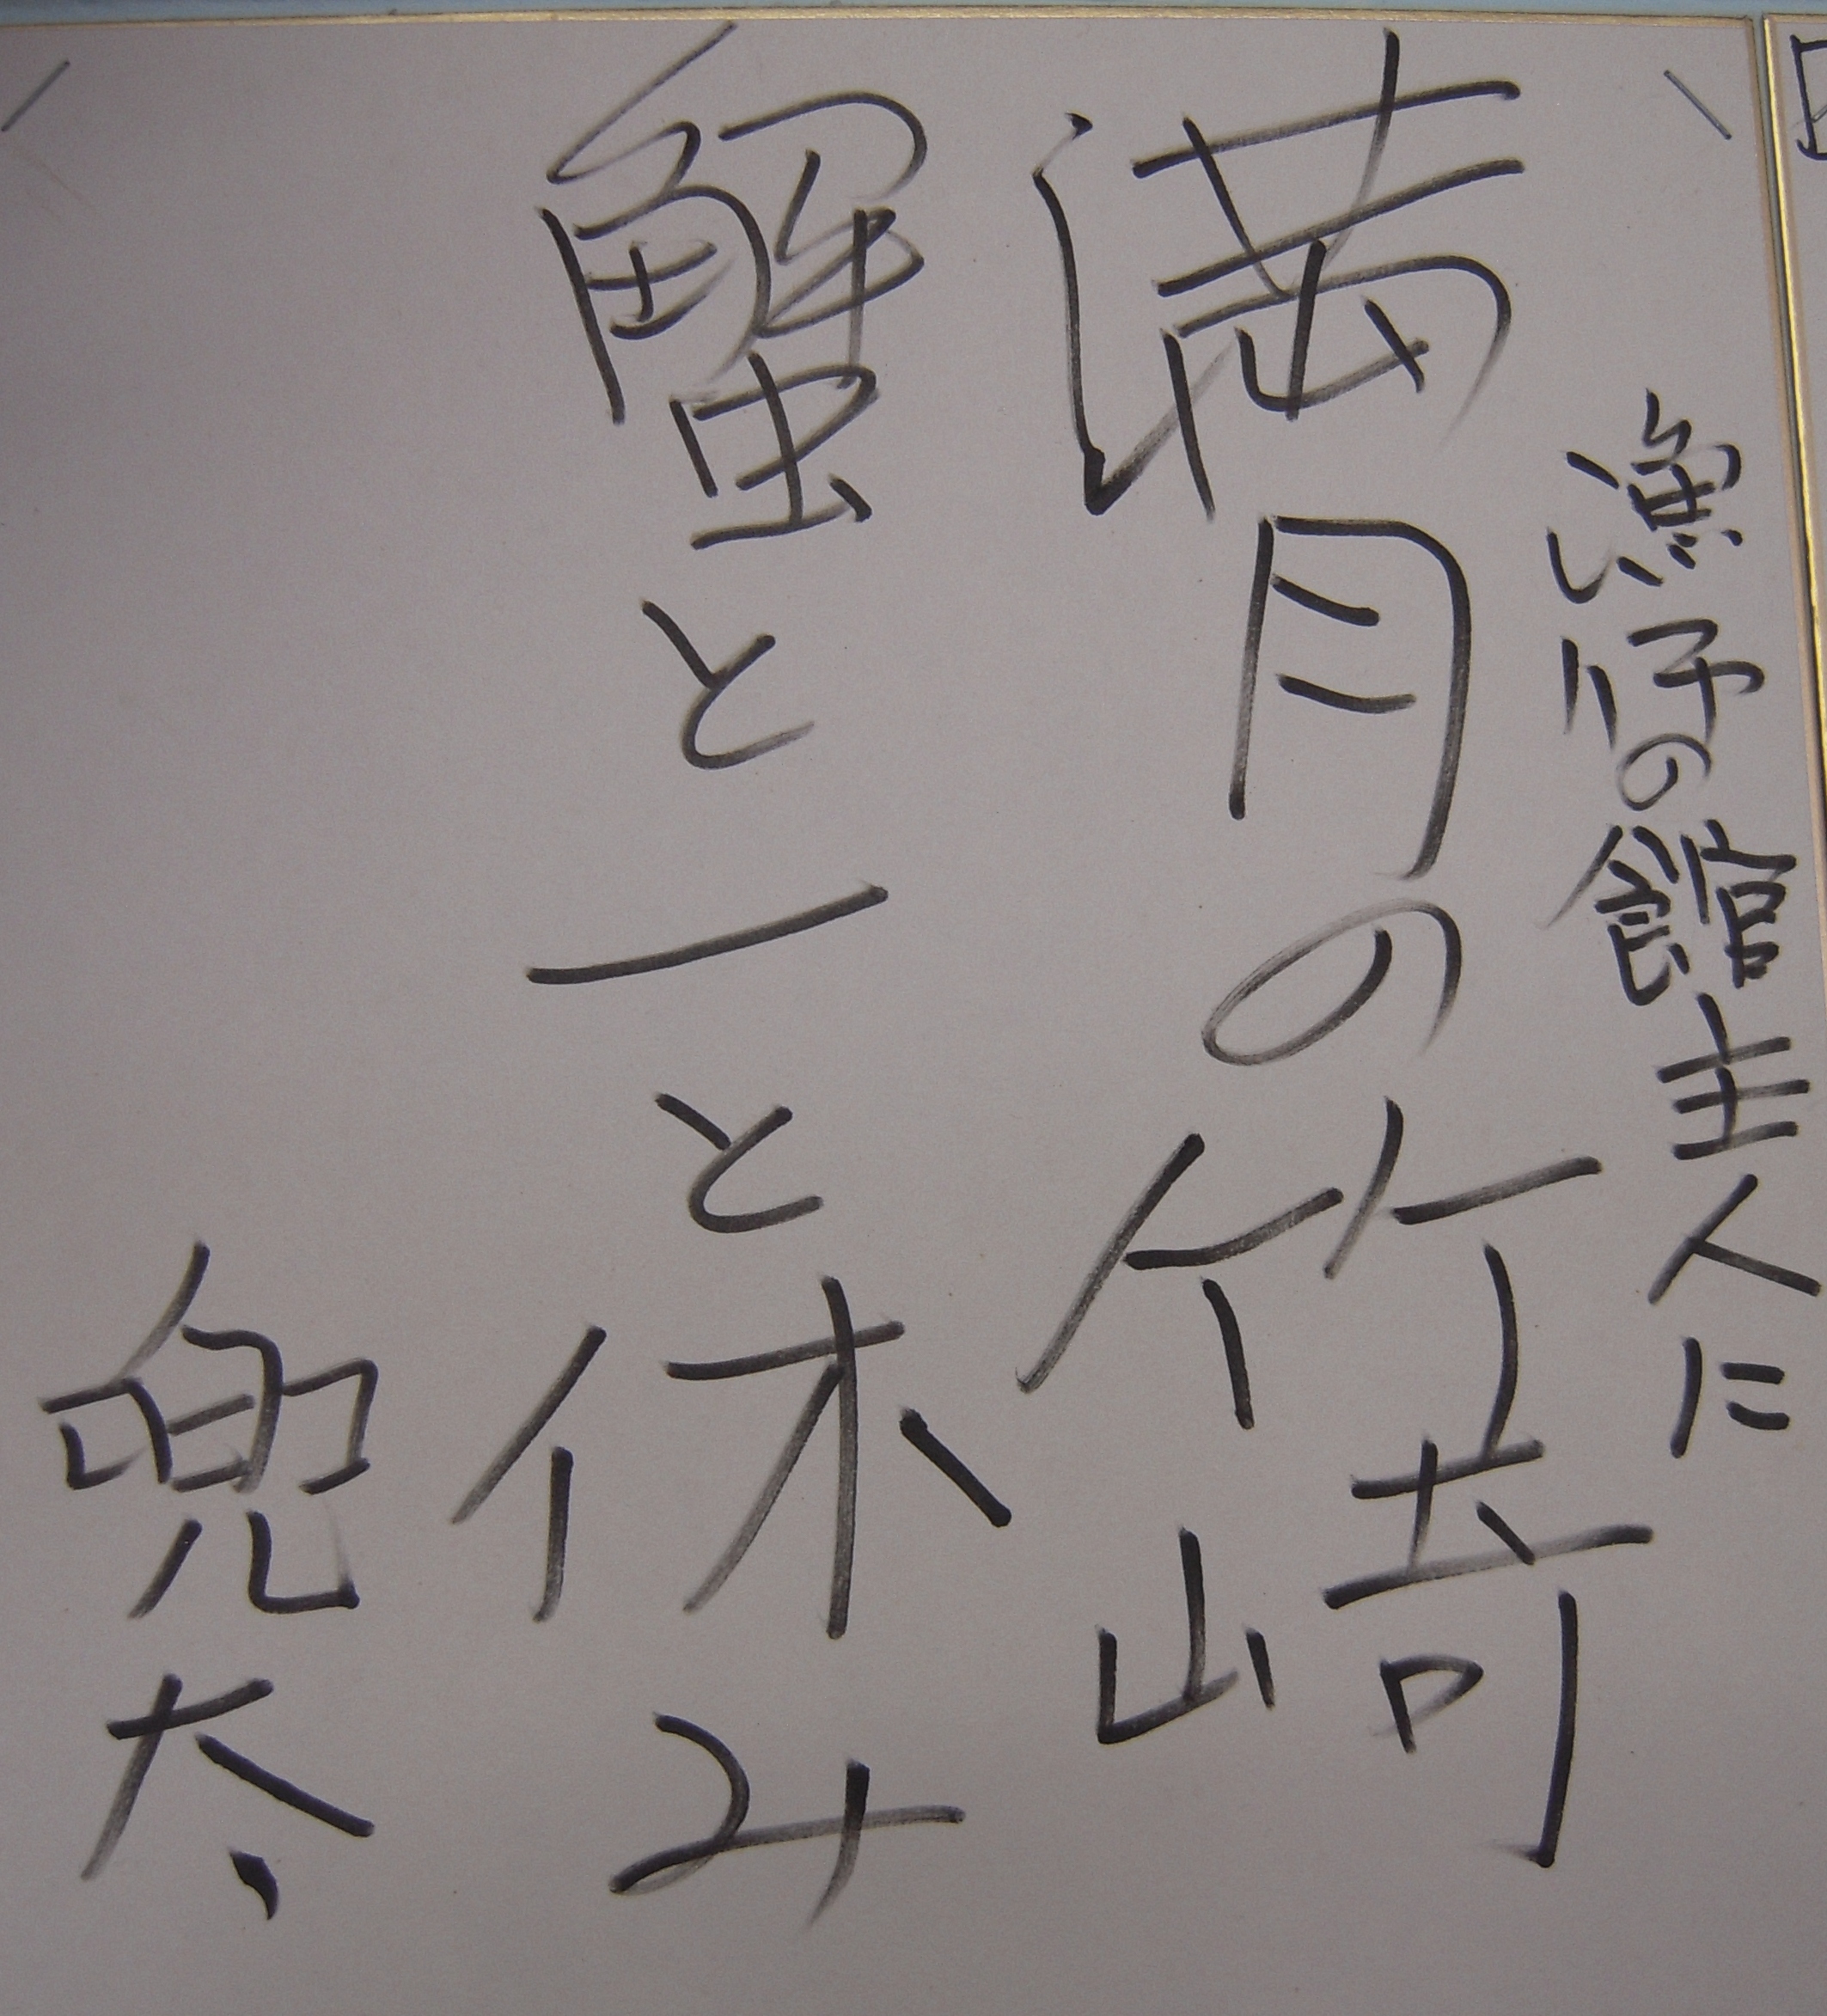 漁師の館主人に
満月の竹崎
蟹と一と休み
兜太